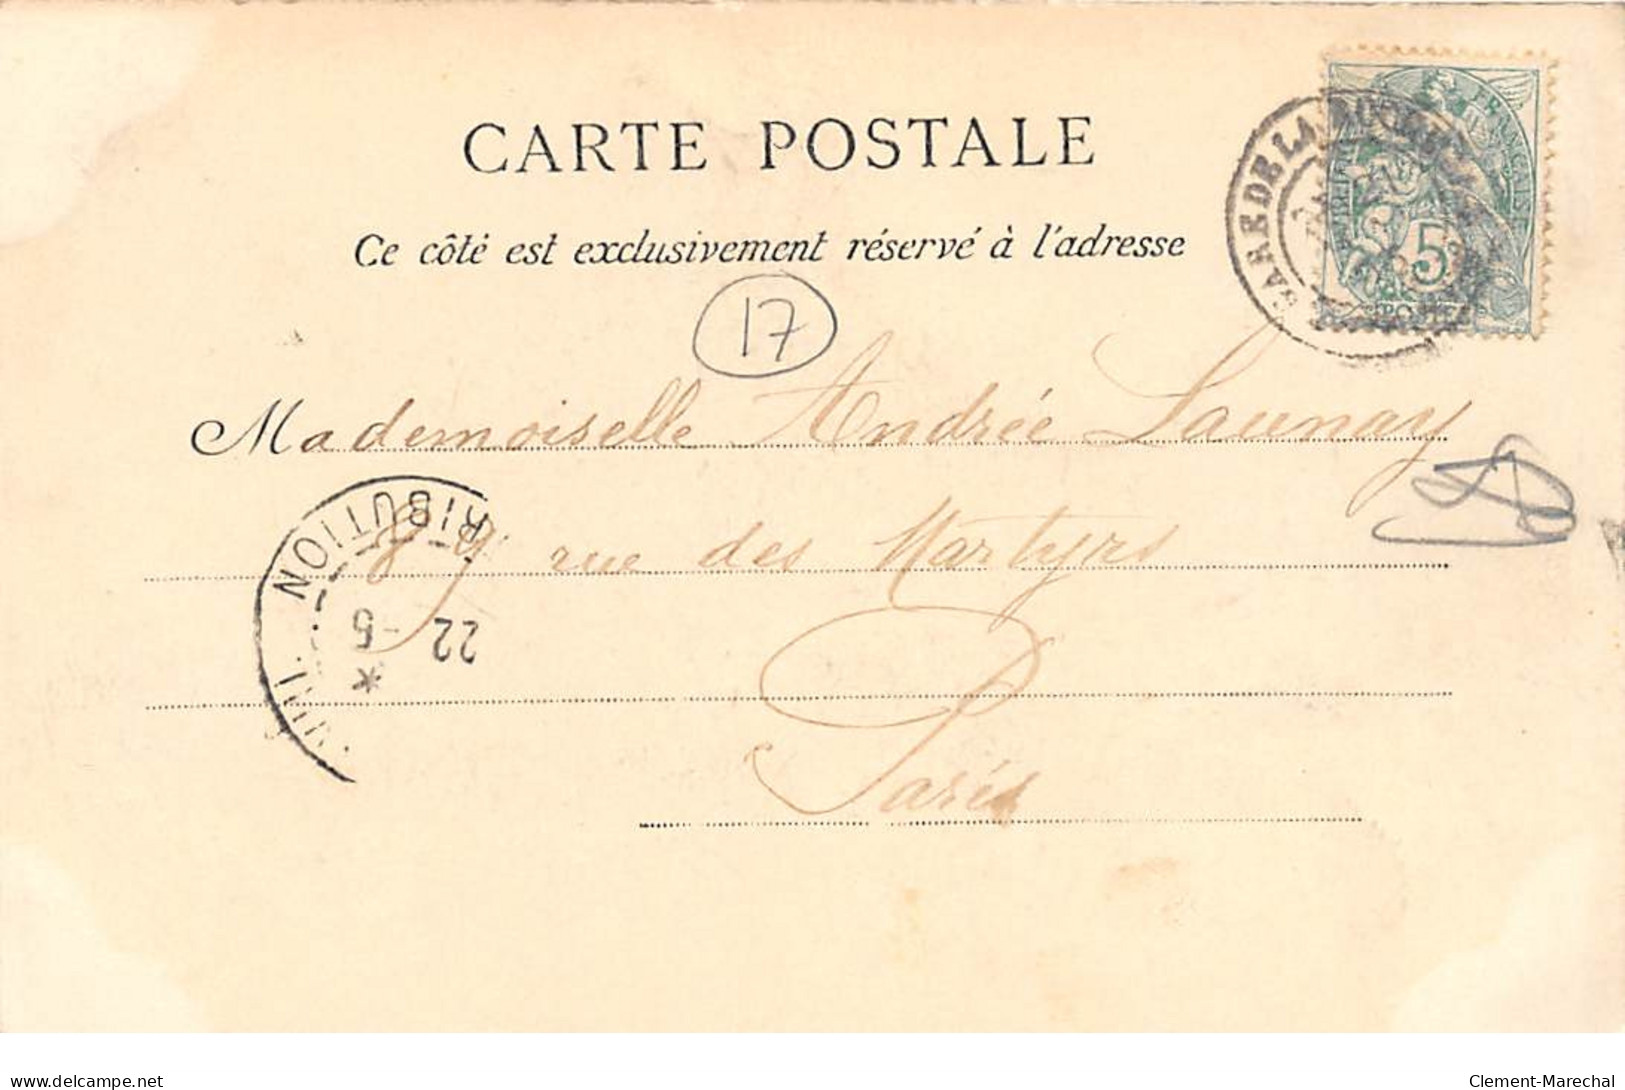 CARTE POSTALE
Ce côté est exclusivement réservé à l'adresse
17
GARE DE LA
FRANÇAISE
5
POSTES
Mademoiselle Andrée Launay
rue des Martyrs
Paris
TRIBUTION
22 -5
*
delcampe.net
Clement-Marechal